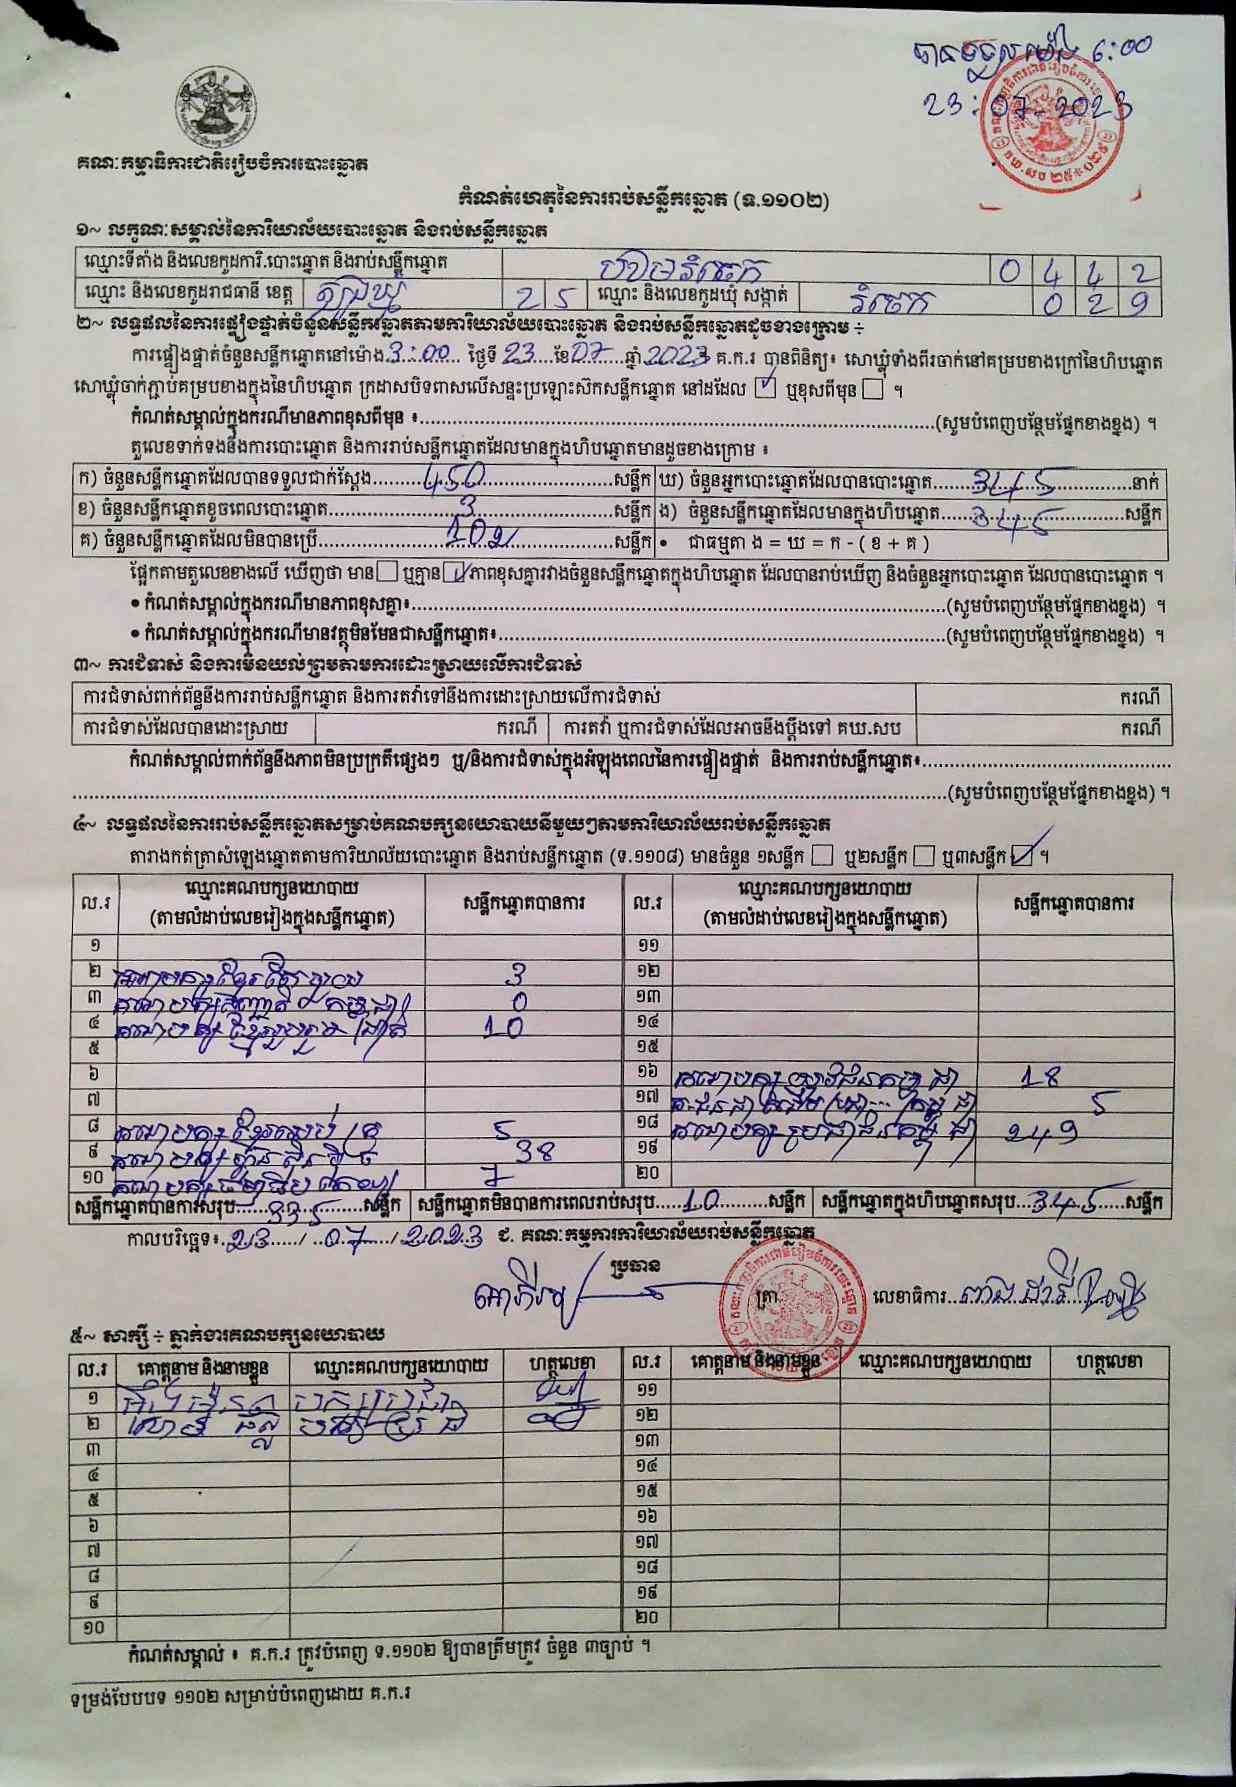 បានទទួលម៉ោង 6:00
23:07-2023
គណៈកម្មាធិការជាតិរៀបចំការបោះឆ្នោត
កំណត់ហេតុនៃការរាប់សន្លឹកឆ្នោត (ទ.១១០២)
១~ លក្ខណៈសម្គាល់នៃការិយាល័យបោះឆ្នោត និងរាប់សន្លឹកឆ្នោត
ឈ្មោះទីតាំង និងលេខកូដការិ.បោះឆ្នោត និងរាប់សន្លឹកឆ្នោត 0 4 4 2
ឈ្មោះ និងលេខកូដរាជធានី ខេត្ត ត្បូងឃ្មុំ 2 5 ឈ្មោះ និងលេខកូដឃុំ សង្កាត់ រំចេក 0 2 9
២~ លទ្ធផលនៃការផ្ទៀងផ្ទាត់ចំនួនសន្លឹកឆ្នោតតាមការិយាល័យបោះឆ្នោត និងរាប់សន្លឹកឆ្នោតដូចខាងក្រោម ÷
ការផ្ទៀងផ្ទាត់ចំនួនសន្លឹកឆ្នោតនៅម៉ោង 3:00 ថ្ងៃទី 23 ខែ 07 ឆ្នាំ 2023 គ.ក.រ បានពិនិត្យ៖ សោឃ្លុំទាំងពីរចាក់នៅគម្របខាងក្រៅនៃហិបឆ្នោត
សោឃ្លុំចាក់ភ្ជាប់គម្របខាងក្នុងនៃហិបឆ្នោត ក្រដាសបិទពាសលើសន្ទះប្រឡោះស៊កសន្លឹកឆ្នោត នៅដដែល ☑ ឬខុសពីមុន ☐ ។
កំណត់សម្គាល់ក្នុងករណីមានភាពខុសពីមុន ៖ (សូមបំពេញបន្ថែមផ្នែកខាងខ្នង) ។
តួលេខទាក់ទងនឹងការបោះឆ្នោត និងការរាប់សន្លឹកឆ្នោតដែលមានក្នុងហិបឆ្នោតមានដូចខាងក្រោម ៖
ក) ចំនួនសន្លឹកឆ្នោតដែលបានទទួលជាក់ស្តែង 450 សន្លឹក ឃ) ចំនួនអ្នកបោះឆ្នោតដែលបានបោះឆ្នោត 345 នាក់
ខ) ចំនួនសន្លឹកឆ្នោតខូចពេលបោះឆ្នោត 3 សន្លឹក ង) ចំនួនសន្លឹកឆ្នោតដែលមានក្នុងហិបឆ្នោត 345 សន្លឹក
គ) ចំនួនសន្លឹកឆ្នោតដែលមិនបានប្រើ 102 សន្លឹក • ជាធម្មតា ង = ឃ = ក - ( ខ + គ )
ផ្អែកតាមតួលេខខាងលើ ឃើញថា មាន ☐ ឬគ្មាន ☑ ភាពខុសគ្នារវាងចំនួនសន្លឹកឆ្នោតក្នុងហិបឆ្នោត ដែលបានរាប់ឃើញ និងចំនួនអ្នកបោះឆ្នោត ដែលបានបោះឆ្នោត ។
• កំណត់សម្គាល់ក្នុងករណីមានភាពខុសគ្នា៖ (សូមបំពេញបន្ថែមផ្នែកខាងខ្នង) ។
• កំណត់សម្គាល់ក្នុងករណីមានវត្ថុមិនមែនជាសន្លឹកឆ្នោត៖ (សូមបំពេញបន្ថែមផ្នែកខាងខ្នង) ។
៣~ ការជំទាស់ និងការមិនយល់ព្រមតាមការដោះស្រាយលើការជំទាស់
ការជំទាស់ពាក់ព័ន្ធនឹងការរាប់សន្លឹកឆ្នោត និងការតវ៉ាទៅនឹងការដោះស្រាយលើការជំទាស់ ករណី
ការជំទាស់ដែលបានដោះស្រាយ ករណី ការតវ៉ា ឬការជំទាស់ដែលអាចនឹងប្តឹងទៅ គឃ.សប ករណី
កំណត់សម្គាល់ពាក់ព័ន្ធនឹងភាពមិនប្រក្រតីផ្សេងៗ ឬ/និងការជំទាស់ក្នុងអំឡុងពេលនៃការផ្ទៀងផ្ទាត់ និងការរាប់សន្លឹកឆ្នោត៖
(សូមបំពេញបន្ថែមផ្នែកខាងខ្នង) ។
៤~ លទ្ធផលនៃការរាប់សន្លឹកឆ្នោតសម្រាប់គណបក្សនយោបាយនីមួយៗតាមការិយាល័យរាប់សន្លឹកឆ្នោត
តារាងកត់ត្រាសំឡេងឆ្នោតតាមការិយាល័យបោះឆ្នោត និងរាប់សន្លឹកឆ្នោត (ទ.១១០៨) មានចំនួន ១សន្លឹក ☐ ឬ២សន្លឹក ☐ ឬ៣សន្លឹក ☑ ។
ល.រ ឈ្មោះគណបក្សនយោបាយ (តាមលំដាប់លេខរៀងក្នុងសន្លឹកឆ្នោត) សន្លឹកឆ្នោតបានការ ល.រ ឈ្មោះគណបក្សនយោបាយ (តាមលំដាប់លេខរៀងក្នុងសន្លឹកឆ្នោត) សន្លឹកឆ្នោតបានការ
១ ១១
២ 3 ១២
៣ 0 ១៣
៤ គណបក្សខ្មែររួបរួមជាតិ 10 ១៤
៥ ១៥
៦ ១៦ គណបក្សយុវជនកម្ពុជា 18
៧ ១៧ 5
៨ 5 ១៨ គណបក្សប្រជាជនកម្ពុជា 249
៩ គណបក្សហ៊្វុនស៊ិនប៉ិច 38 ១៩
១០ 7 ២០
សន្លឹកឆ្នោតបានការសរុប 335 សន្លឹក សន្លឹកឆ្នោតមិនបានការពេលរាប់សរុប 10 សន្លឹក សន្លឹកឆ្នោតក្នុងហិបឆ្នោតសរុប 345 សន្លឹក
កាលបរិច្ឆេទ៖ 23 / 07 / 2023 ជ. គណៈកម្មការការិយាល័យរាប់សន្លឹកឆ្នោត
ប្រធាន
ត្រា លេខាធិការ
៥~ សាក្សី ÷ ភ្នាក់ងារគណបក្សនយោបាយ
ល.រ គោត្តនាម និងនាមខ្លួន ឈ្មោះគណបក្សនយោបាយ ហត្ថលេខា ល.រ គោត្តនាម និងនាមខ្លួន ឈ្មោះគណបក្សនយោបាយ ហត្ថលេខា
១ ១១
២ ១២
៣ ១៣
៤ ១៤
៥ ១៥
៦ ១៦
៧ ១៧
៨ ១៨
៩ ១៩
១០ ២០
កំណត់សម្គាល់ ៖ គ.ក.រ ត្រូវបំពេញ ទ.១១០២ ឱ្យបានត្រឹមត្រូវ ចំនួន ៣ច្បាប់ ។
ទម្រង់បែបបទ ១១០២ សម្រាប់បំពេញដោយ គ.ក.រ